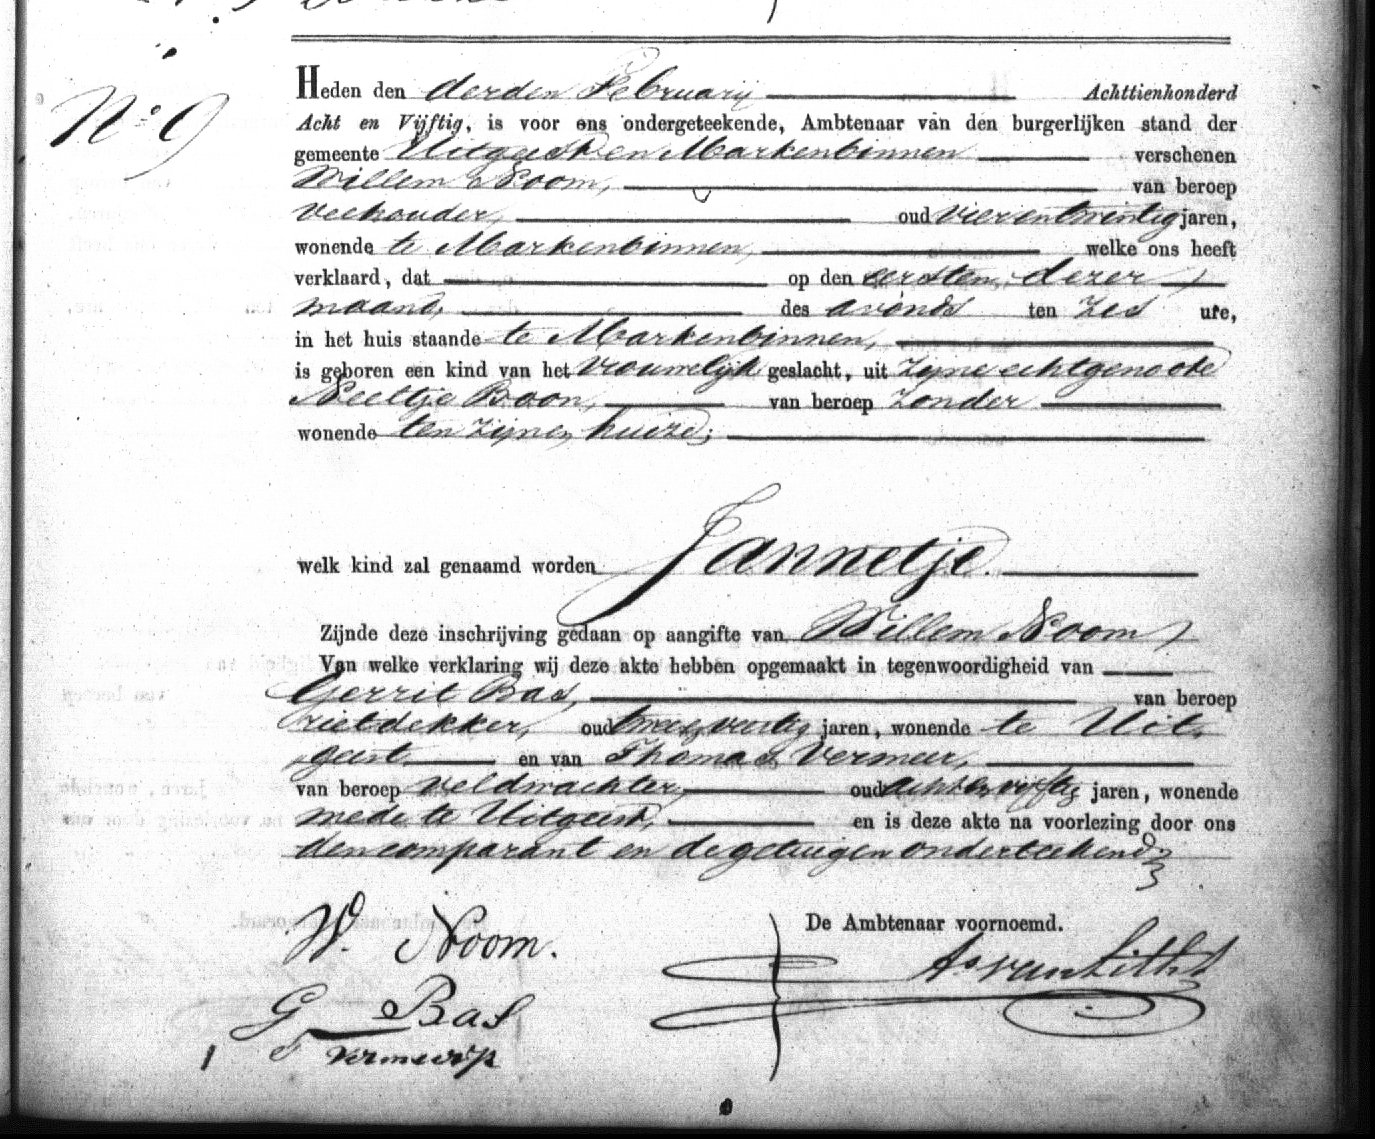 No 9
Heden den derden February Achttienhonderd
Acht en Vijftig, is voor ons ondergeteekende, Ambtenaar van den burgerlijken stand der
gemeente Uitgeest en Markenbinnen verschenen
Willem Noom, van beroep
veehouder, oud vierentwintig jaren,
wonende te Markenbinnen, welke ons heeft
verklaard, dat op den eersten dezer
maand, des avonds ten zes ure,
in het huis staande te Markenbinnen,
is geboren een kind van het vrouwelijk geslacht, uit zijne echtgenoote
Neeltje Boon, van beroep zonder
wonende ten zijnen huize;
welk kind zal genaamd worden Jannetje.
Zijnde deze inschrijving gedaan op aangifte van Willem Noom,
Van welke verklaring wij deze akte hebben opgemaakt in tegenwoordigheid van
Gerrit Bas, van beroep
rietdekker, oud jaren, wonende te Uit
geest en van Thomas Vermeer,
van beroep veldwachter, oud achtenvijftig jaren, wonende
mede te Uitgeest, en is deze akte na voorlezing door ons
den comparant en de getuigen onderteekend
W. Noom.
De Ambtenaar voornoemd.
G Bas